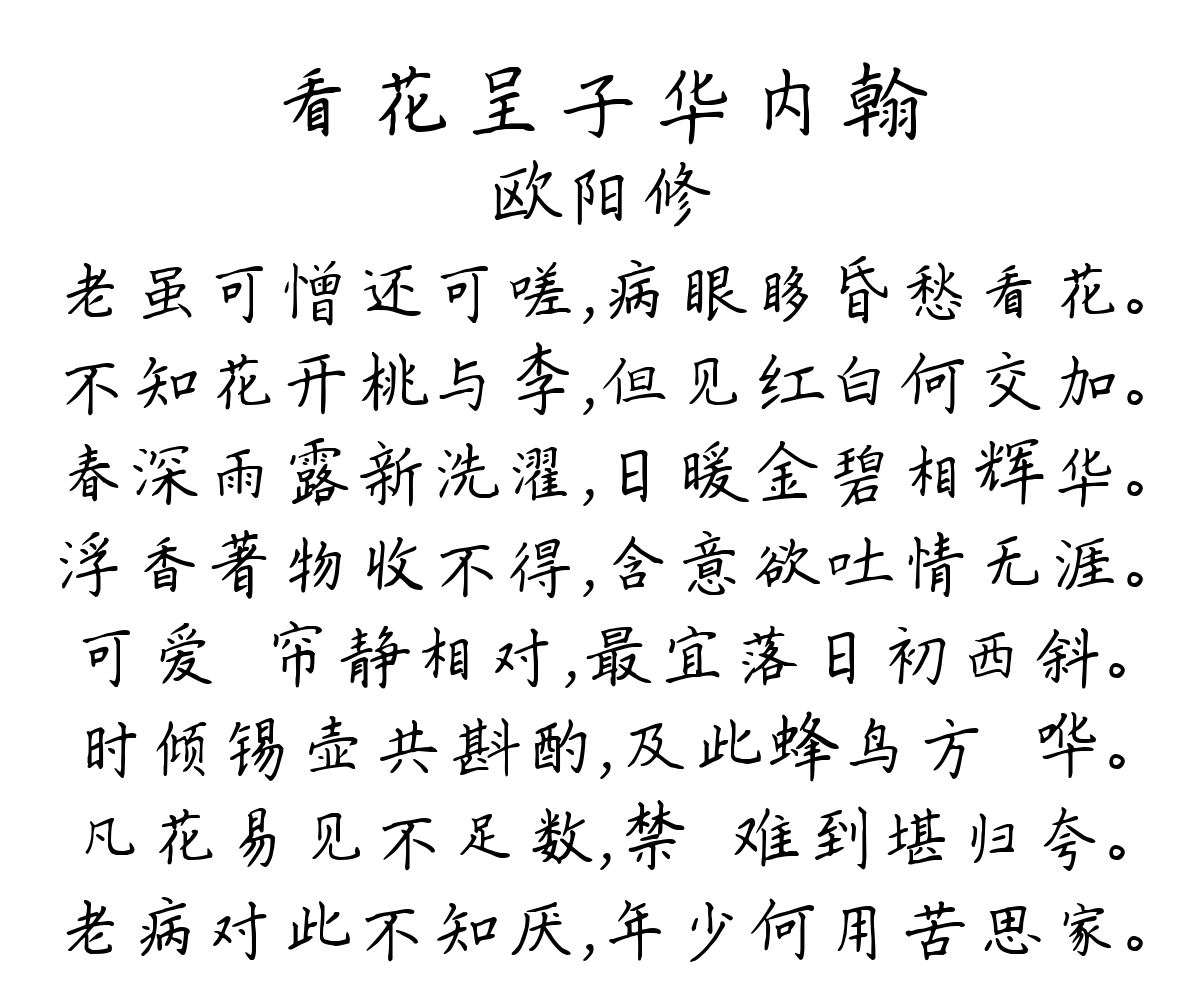 看花呈子华内翰
欧阳修
老虽可憎还可嗟,病眼眵昏愁看花。
不知花开桃与李,但见红白何交加。
春深雨露新洗濯,日暖金碧相辉华。
浮香著物收不得,含意欲吐情无涯。
可爱 帘静相对,最宜落日初西斜。
时倾锡壶共斟酌,及此蜂鸟方 哗。
凡花易见不足数,禁 难到堪归夸。
老病对此不知厌,年少何用苦思家。